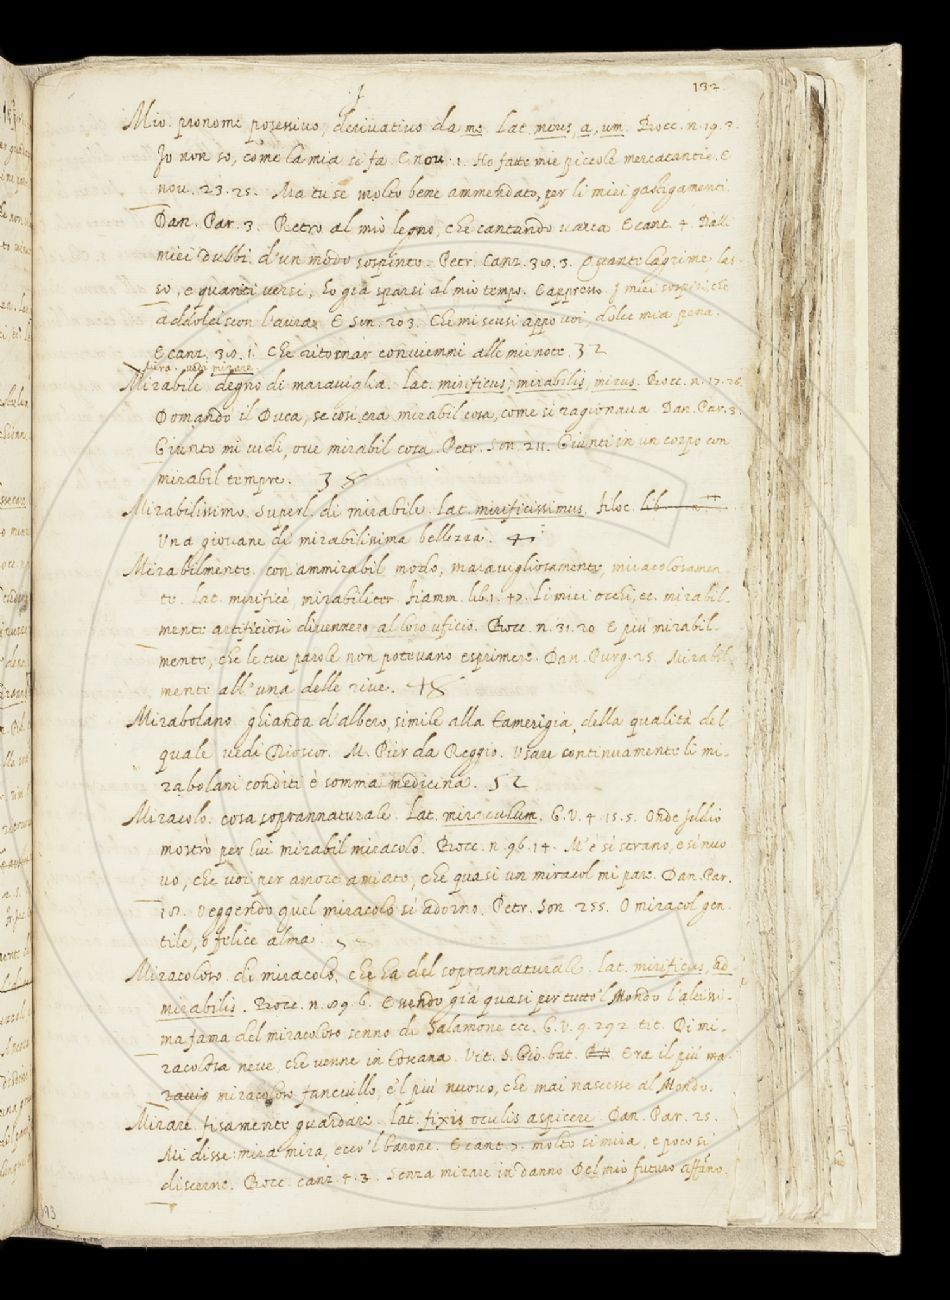 132
Mio. pronome posessiuo, deriuatiuo da me. Lat. meus, a, um. Bocc. n. 19. 3.
Io non so, come la mia si fa. E nou. 1. Ho fatte mie piccole mercatantie. E
nou. 23. 25. Ma tu se molto bene ammendato, per li miei gastigamenti
Dan. Par. 3. Retro al mio legno, che cantando uarca E cant. 4. Dalli
miei dubbi d'un modo sospinto. Petr. Canz. 39. 3. Quante lagrime, las-
so, e quanti versi, ho già sparsi al mio tempo. E appresso I miei sospiri, che
addolciscon l'aura E Son. 203. Che mi scusi appo uoi dolce mia pena.
E canz. 39. 1. Che ritornar conuiemmi alle mie note. 32
Mirabile degno di marauiglia. Lat. mirificus, mirabilis, mirus. Bocc. n. 17. 28.
Domandò il Duca, se così era mirabil cosa, come si ragionaua. Dan. Par. 3.
Giunto mi uidi, oue mirabil cosa. Petr. Son. 211. Giunti in un corpo con
mirabil tempre. 38
Mirabilissimo. Superl. di mirabile. Lat. mirificissimus. Filoc. lib.
Una giouane di mirabilissima bellezza. 4
Mirabilmente. con ammirabil modo, marauigliosamente, miracolosamen-
te. Lat. mirificè mirabiliter Fiamm. lib. 1. 47. Li miei occhi, ec. mirabil-
mente artificiosi diuennero al loro uficio. Bocc. n. 31. 20 E più mirabil-
mente, che le tue parole non poteuano esprimere. Dan. Purg. 25. Mirabil-
mente all'una delle riue. 48
Mirabolano ghianda d'albero, simile alla Tamerigia, della qualità del
quale uedi Dioscor. M. Pier da Reggio. Usare continuamente li mi-
rabolani conditi è somma medicina. 52
Miracolo. cosa soprannaturale. Lat. miraculum. G. V. 4. 15. 5. Onde Iddio
mostrò per lui mirabil miracolo. Bocc. n. 96. 14. M'è sì strano, e sì nuo
uo, che uoi per amore amiate, che quasi un miracol mi pare. Dan. Par.
18. Veggendo quel miracolo sì adorno. Petr. Son. 255. O miracol gen-
tile, o felice alma
Miracoloso. di miracolo, che ha del soprannaturale. Lat. mirificus, ad
mirabilis. Bocc. n. 89. 6. Essendo già quasi per tutto 'l Mondo l'altissi-
ma fama del miracoloso senno di Salamone ecc. G. V. 9. 292. tit. Di mi-
racolosa neue, che uenne in Toscana. Vit. S. Gio. bat. Era il più ma-
rauig miracoloso fanciullo, e 'l più nuouo, che mai nascesse al Mondo.
Mirare. fisamente guardare. Lat. fixis oculis aspicere. Dan. Par. 25.
Mi disse: mira mira, ecco 'l barone. E cant. 7. molto si mira, e poco si
discerne. Bocc. canz. 4. 3. Senza mirare in danno Del mio futuro affanno.
193